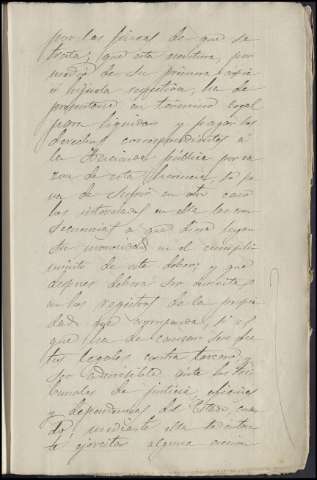 por las fincas de que se
trata; que esta escritura, por
medio de su primera copia
ó hijuela respectiva, ha de
presentarse en término legal
para liquidar y pagar los
derechos correspondientes á
la Hacienda pública por ra
zon de esta herencia, so pe
na de sufrir en otro caso
las interesadas en ella las con
secuencias a que diese lugar
su morosidad en el cumpli
miento de este deber; y que
despues deberá ser inscrita
en los registros de la propie
dad que corresponda, si es
que ha de causar sus efec
tos legales contra tercero y
ser admisible ante los tri
bunales de justicia, oficinas
y dependencias del Estado, cuan
do, mediante ella se inten
te ejercitar alguna accion